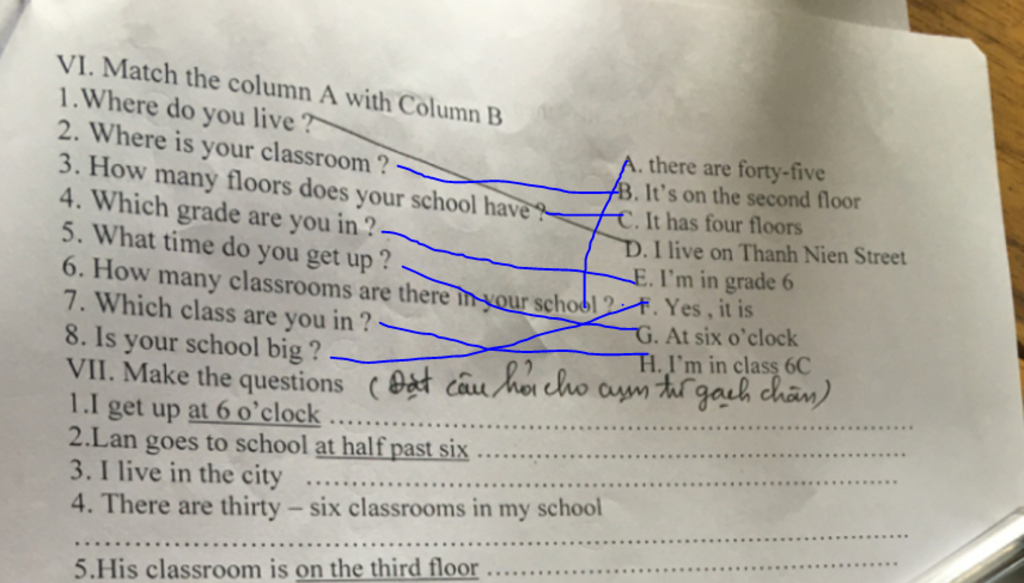 VI. Match the column A with Column B
1.Where do you live ?
2. Where is your classroom ?
3. How many floors does your school have ?
4. Which grade are you in ?
5. What time do you get up ?
6. How many classrooms are there in your school ?
7. Which class are you in ?
8. Is your school big ?
A. there are forty-five
B. It's on the second floor
C. It has four floors
D. I live on Thanh Nien Street
E. I'm in grade 6
F. Yes , it is
G. At six o'clock
H. I'm in class 6C
VII. Make the questions (Đặt câu hỏi cho cụm từ gạch chân)
1.I get up at 6 o'clock ................................................
2.Lan goes to school at half past six ................................................
3. I live in the city ................................................
4. There are thirty – six classrooms in my school
................................................
5.His classroom is on the third floor ................................................